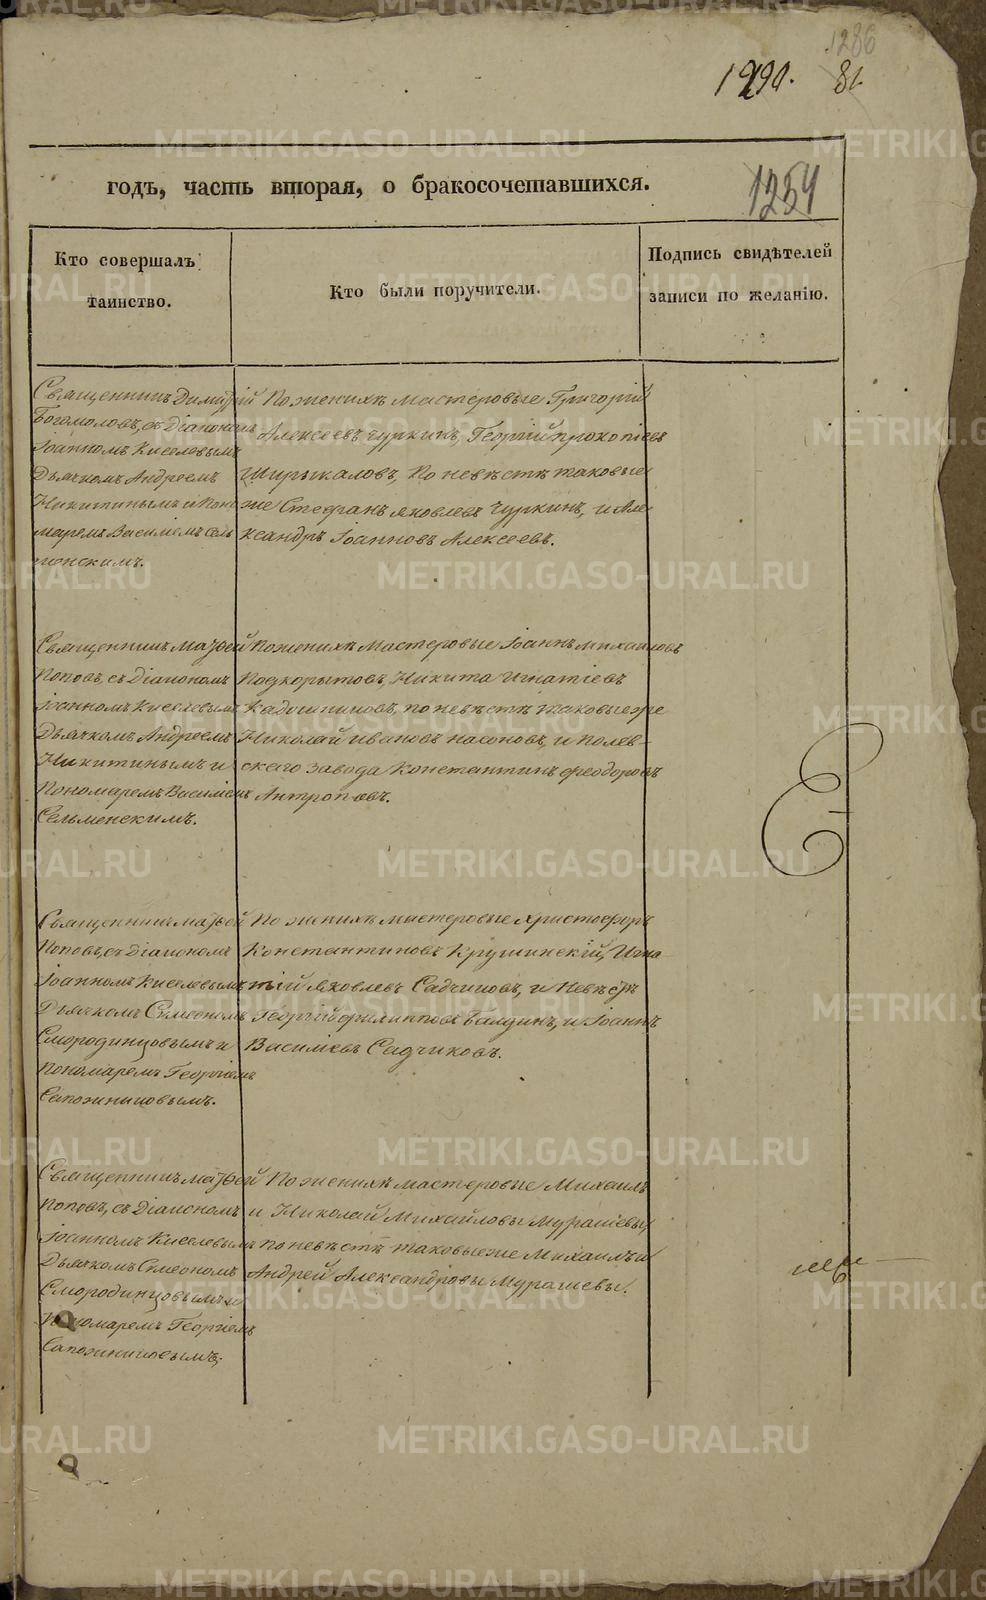 1286
1290. 81.
годъ, часть вторая, о бракосочетавшихся.
1254
Кто совершалъ
таинство.
Кто были поручители.
Подпись свидѣтелей
записи по желанію.
Священникъ Димитрій
Богомоловъ, съ Діакономъ
Іоанномъ Киселевымъ
Дьячкомъ Андреемъ
Никитинымъ и Поно
маремъ Василіемъ Сель
менскимъ.
По женихѣ мастеровые Григорій
Алексеевъ Чуркинъ, Георгій Прокопіевъ
Ширыкаловъ, По невѣстѣ таковые
же Стефанъ Яковлевъ Чуркинъ, и Але
ксандръ Іоанновъ Алексеевъ.
Священникъ Матфей
Поповъ, съ Діакономъ
Іоанномъ Киселевымъ
Дьячкомъ Андреемъ
Никитинымъ и
Пономаремъ Василіемъ
Сельменскимъ.
По женихѣ мастеровые Іоаннъ Михаиловъ
Подкорытовъ, Никита Игнатіевъ
Кадошниковъ, по невѣстѣ таковые же
Николай Ивановъ Насоновъ, и Полев-
скаго завода Константинъ Феодоровъ
Антроповъ.
Священникъ Матфей
Поповъ, съ Діакономъ
Іоанномъ Киселевымъ
Дьячкомъ Симеономъ
Смородинцовымъ и
Пономаремъ Георгіемъ
Сапожниковымъ.
По женихѣ мастеровые Христофоръ
Константиновъ Крушинскій, Игна
тій Яковлевъ Садчиковъ, и Невѣстѣ
Георгій Филипповъ Балдинъ, и Іоаннъ
Василіевъ Садчиковъ.
Священникъ Матфей
Поповъ, съ Діакономъ
Іоанномъ Киселевымъ
Дьячкомъ Симеономъ
Смородинцовымъ и
Пономаремъ Георгіемъ
Сапожниковымъ.
По женихѣ мастеровые Михаилъ
и Николай Михайловы Мурашевы,
по невѣстѣ таковые же Михаилъ и
Андрей Александровы Мурашевы.
METRIKI.GASO-URAL.RU